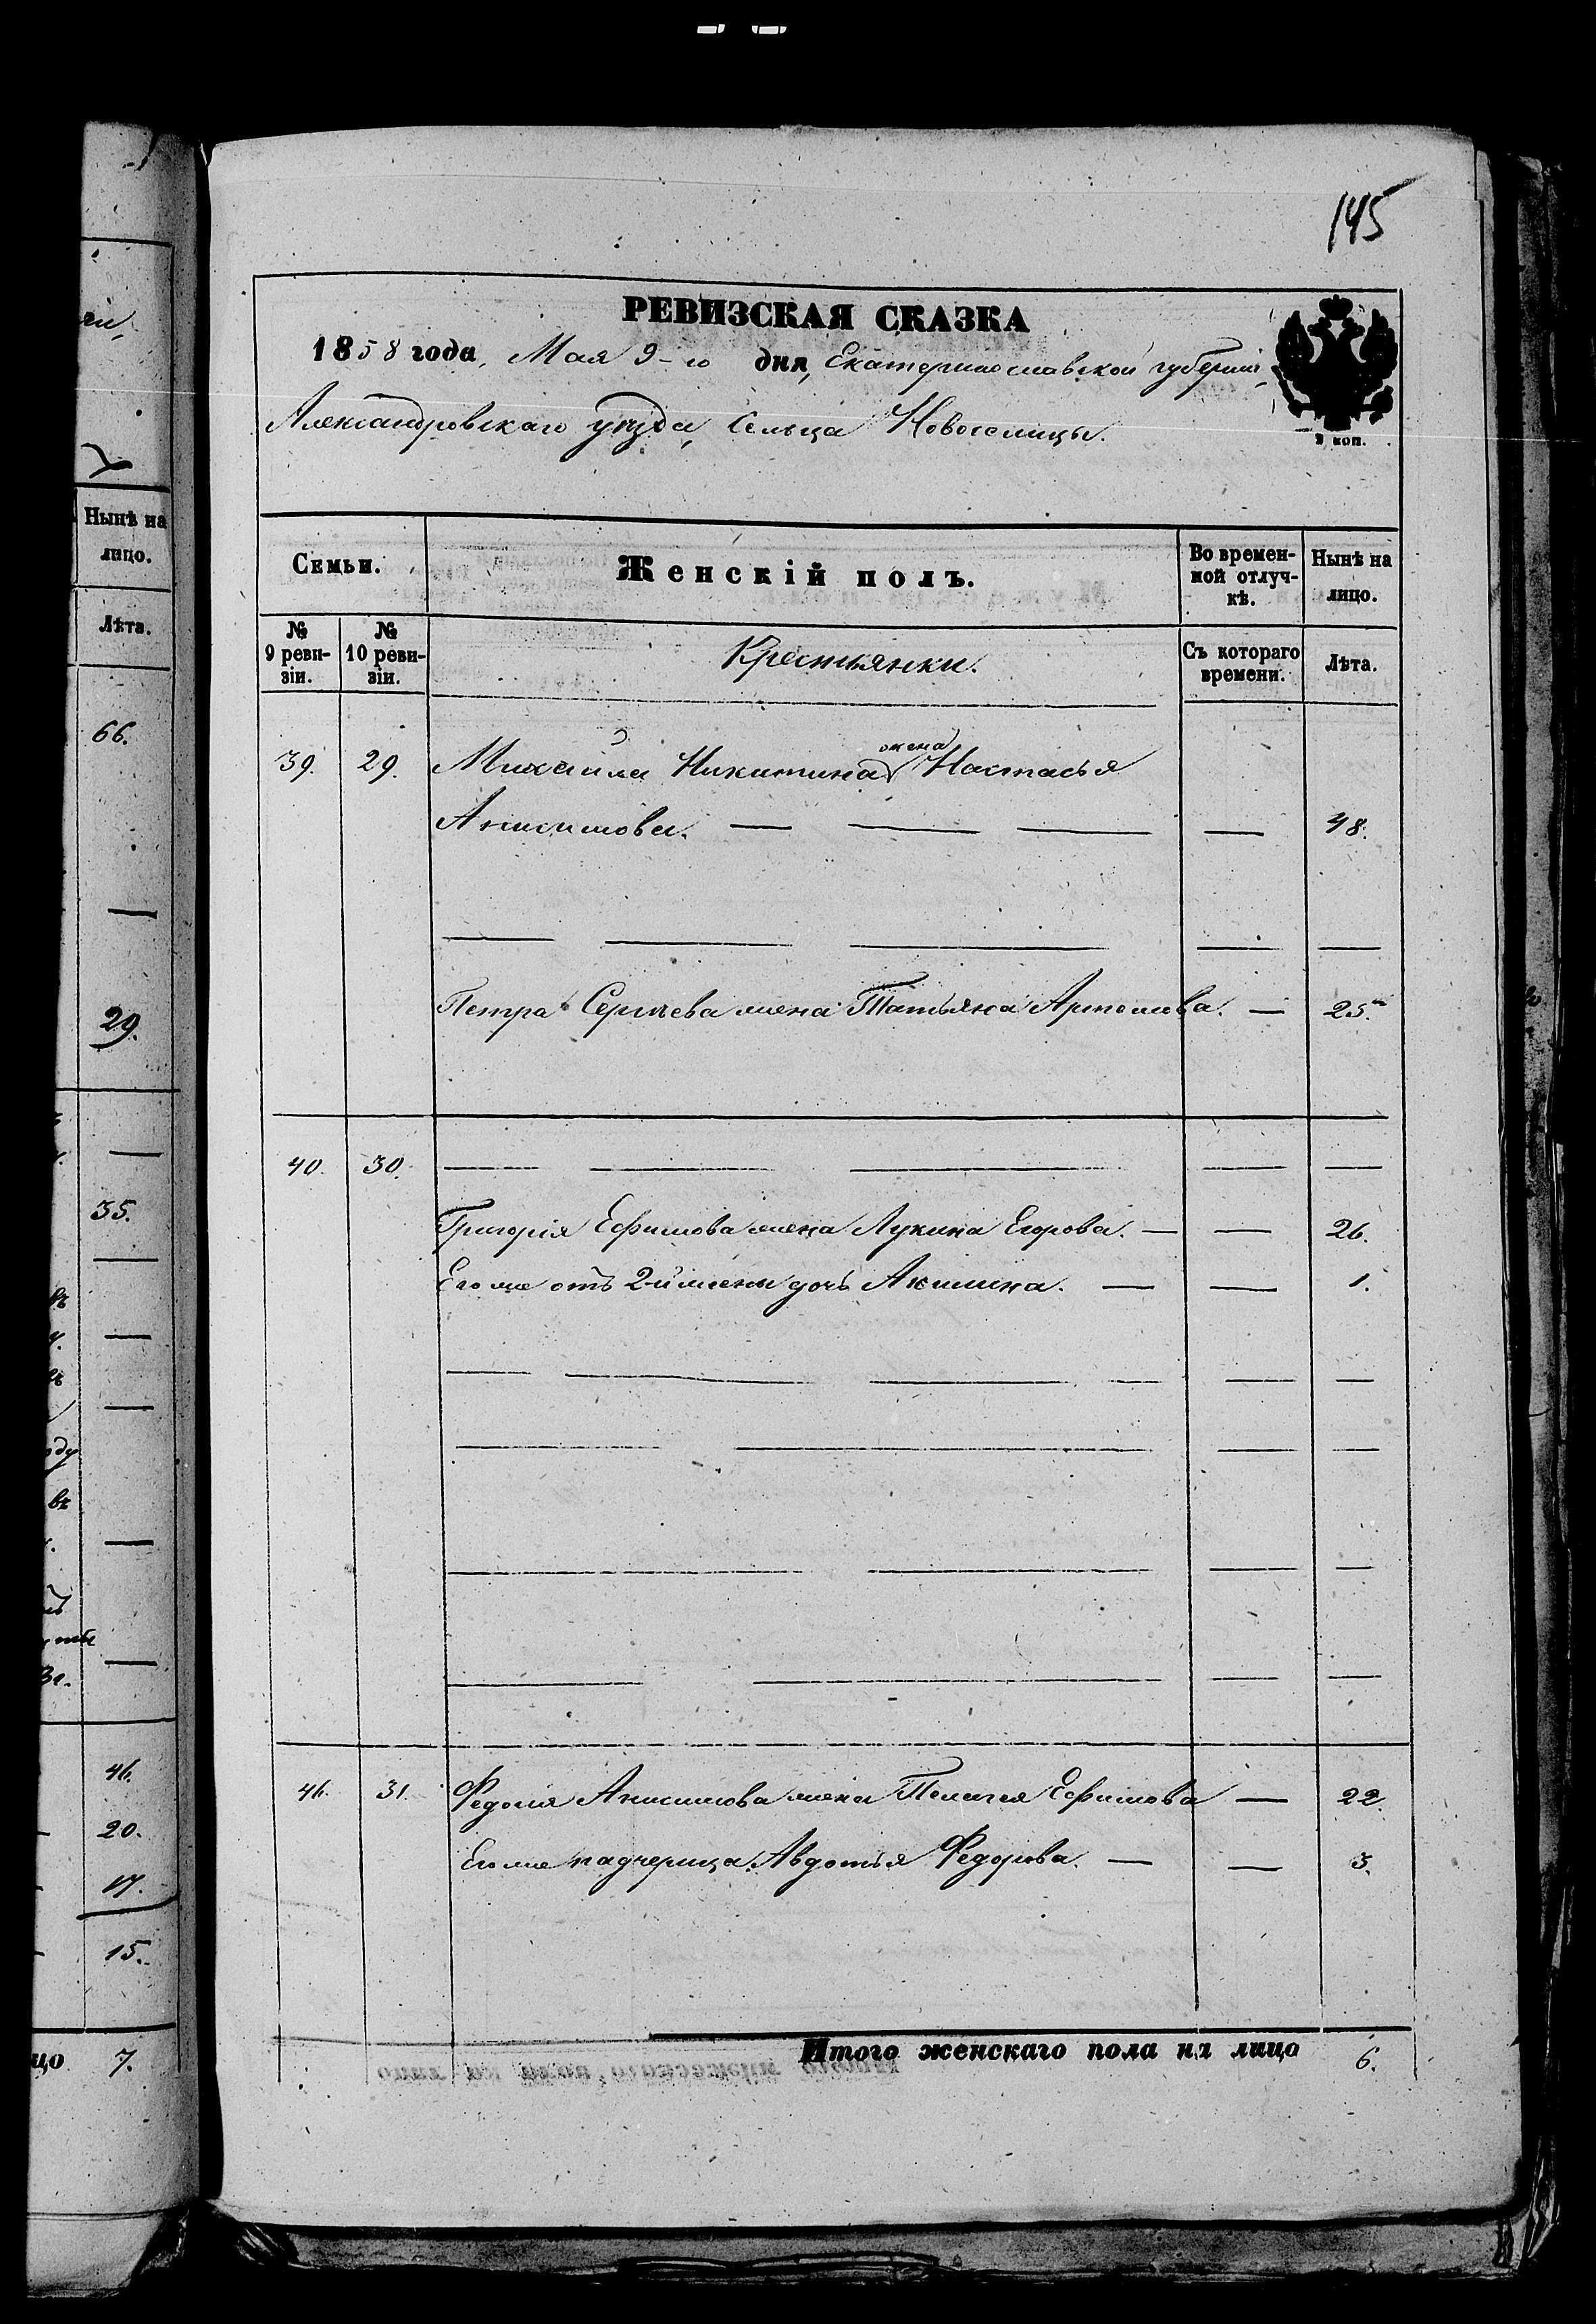 145
РЕВИЗСКАЯ СКАЗКА
1858 года, Мая 9-го дня, Екатеринославской губерніи,
Александровскаго уѣзда, сельца Новоселицы.
3 коп.
Семьи. Женскій полъ. Во времен-ной отлуч-кѣ. Нынѣ на лицо.
№ 9 реви-зіи. № 10 реви-зіи. Крестьянки. Съ котораго времени. Лѣта.
39. 29. Михайла Никитина жена Настасья
Анисимова. — — — — 48.
— — — — —
Петра Сергѣева жена Татьяна Артомова. — 25.
40. 30. — — — — —
Григорія Ефимова жена Лукина Егорова. — — 26.
Его же отъ 2-й жены дочь Акилина. — — 1.
— — — — — —
— — — —
— — — —
— — — —
46. 31. Федося Анисимова жена Пелагея Ефимова — 22.
Его же падчерица Авдотья Федорова. — — 3.
Итого женскаго пола на лицо 6.
Нынѣ на
лицо.
Лѣта.
66.
—
29.
—
35.
—
—
—
—
—
46.
20.
17.
15.
цо 7.